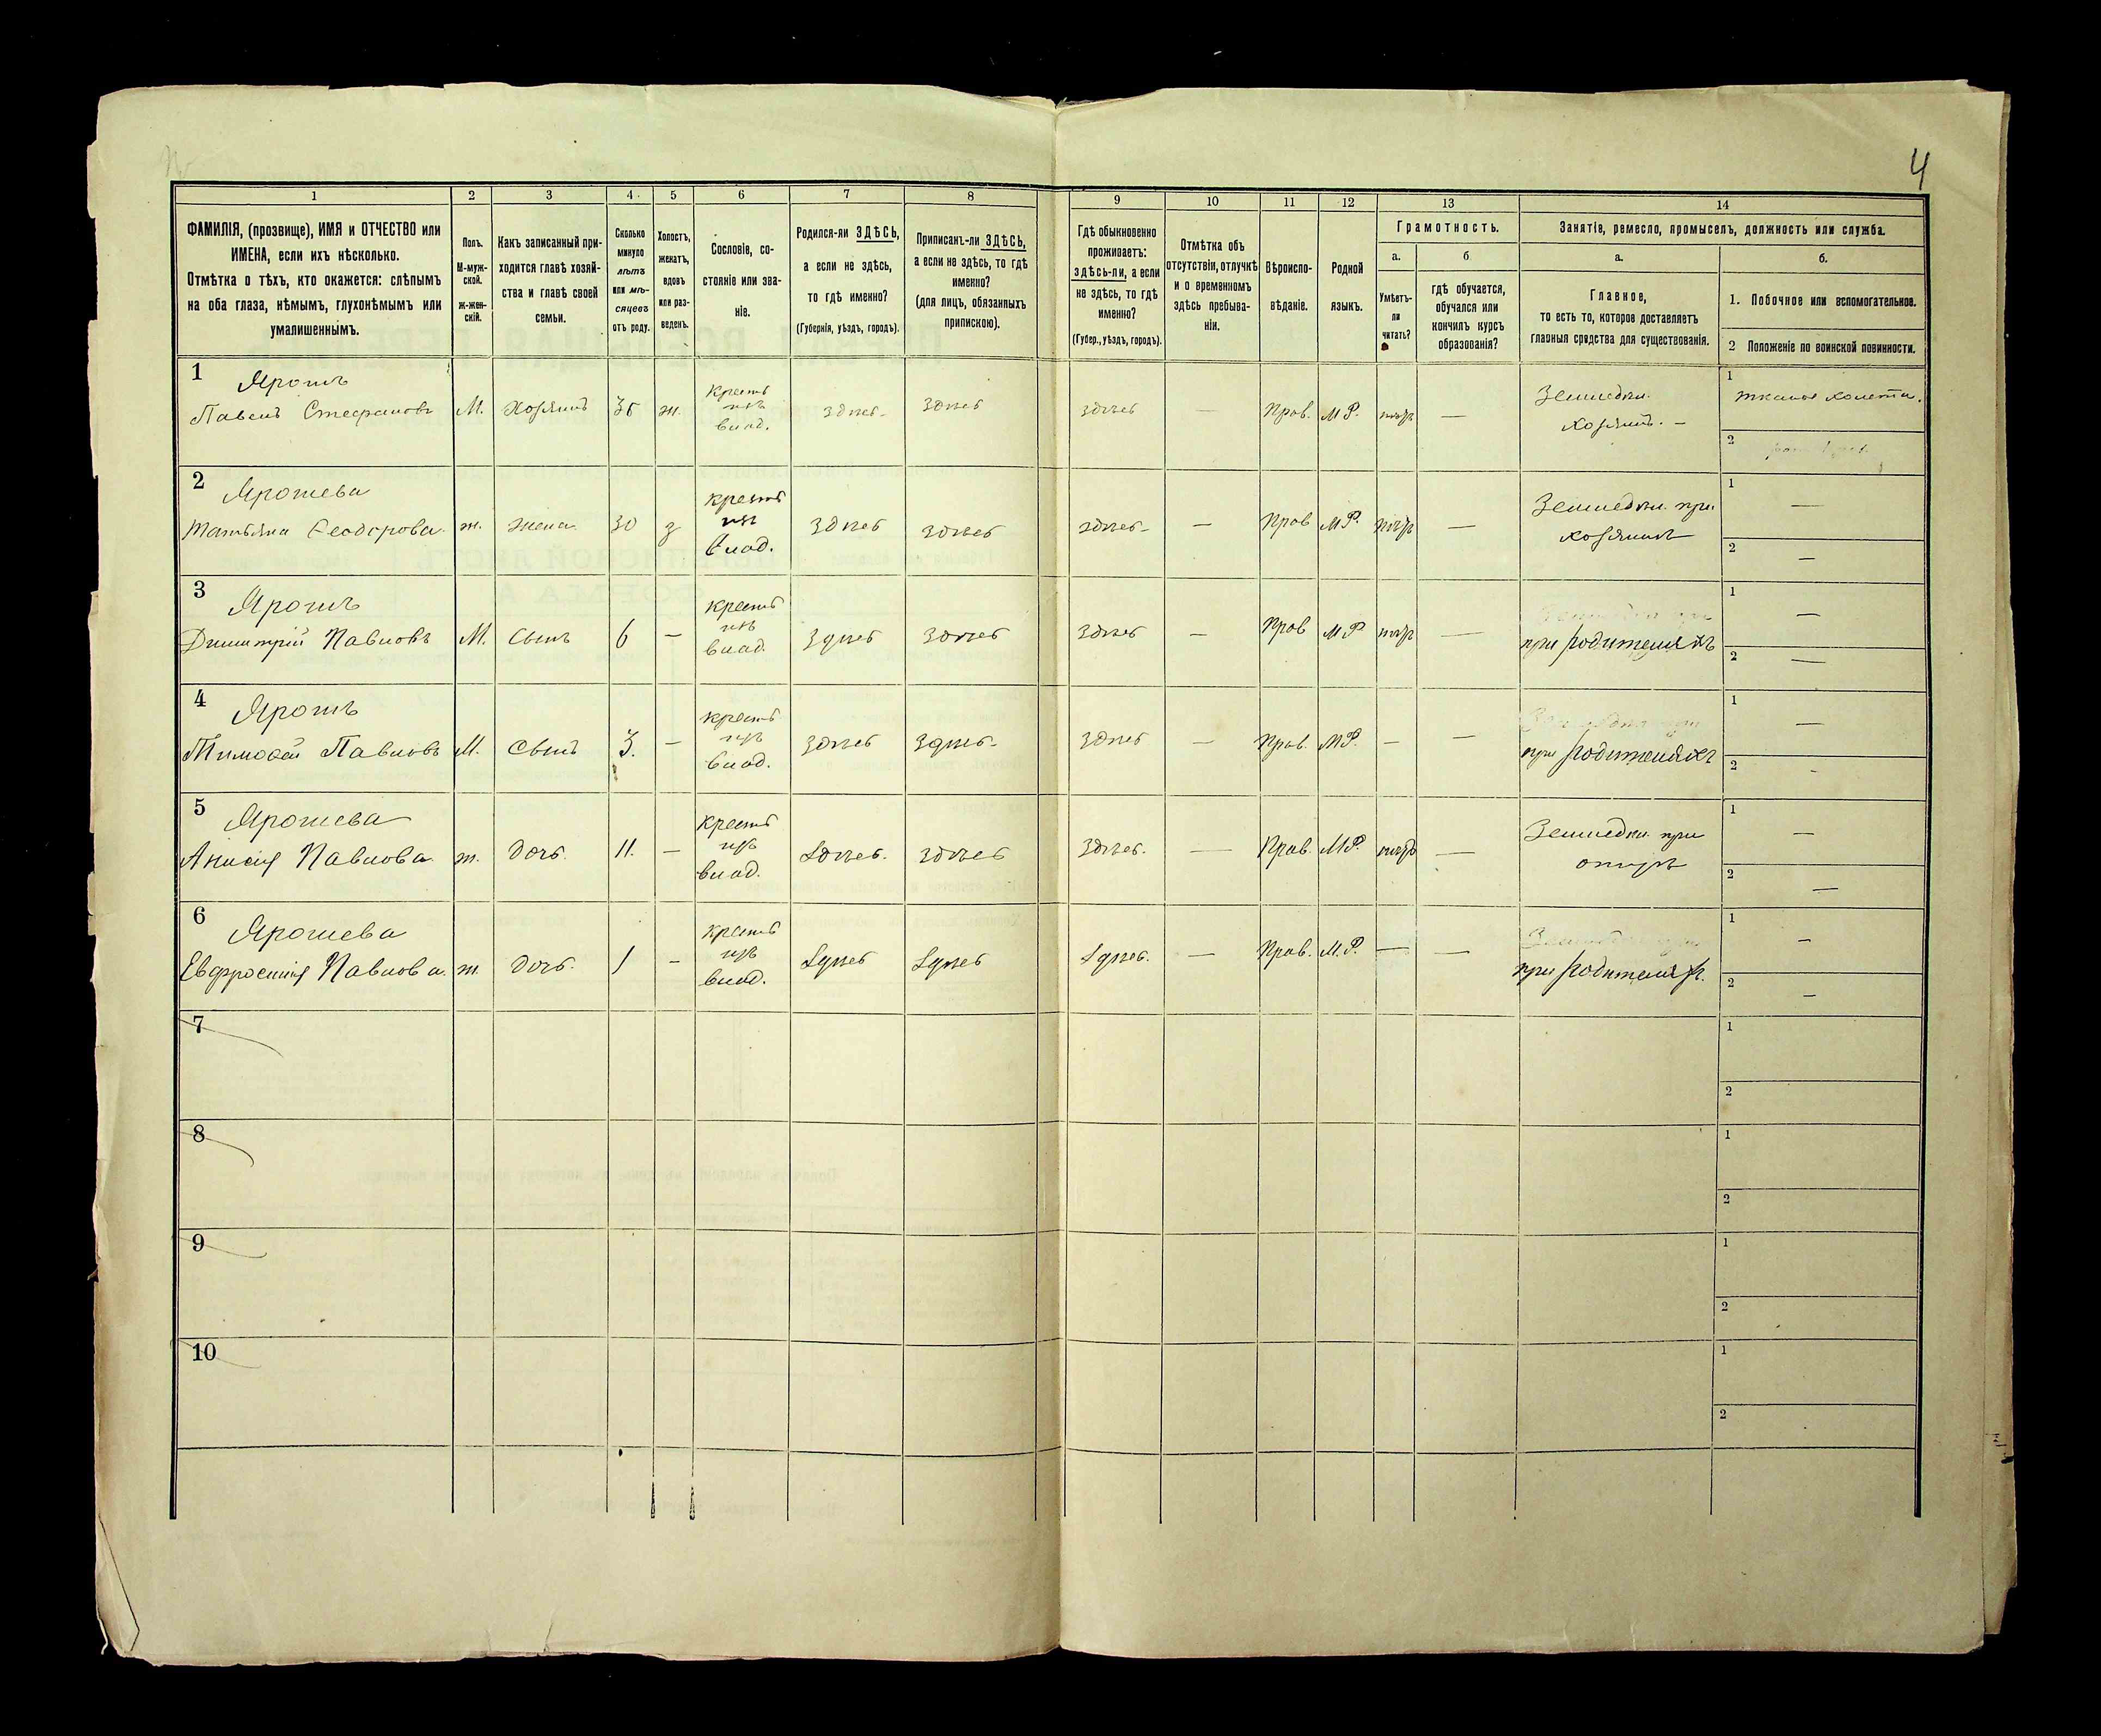 4
1 2 3 4 5 6 7 8 9 10 11 12 13 14
ФАМИЛІЯ, (прозвище), ИМЯ и ОТЧЕСТВО или
ИМЕНА, если ихъ нѣсколько.
Отмѣтка о тѣхъ, кто окажется: слѣпымъ
на оба глаза, нѣмымъ, глухонѣмымъ или
умалишеннымъ.
Полъ.
М-муж-
ской.
ж-жен-
скій.
Какъ записанный при-
ходится главѣ хозяй-
ства и главѣ своей
семьи.
Сколько
минуло
лѣтъ
или мѣ-
сяцевъ
отъ роду.
Холостъ,
женатъ,
вдовъ
или раз-
веденъ.
Сословіе, со-
стояніе или зва-
ніе.
Родился-ли ЗДѢСЬ,
а если не здѣсь,
то гдѣ именно?
(Губернія, уѣздъ, городъ).
Приписанъ-ли ЗДѢСЬ,
а если не здѣсь, то гдѣ
именно?
(для лицъ, обязанныхъ
припискою).
Гдѣ обыкновенно
проживаетъ:
здѣсь-ли, а если
не здѣсь, то гдѣ
именно?
(Губер., уѣздъ, городъ).
Отмѣтка объ
отсутствіи, отлучкѣ
и о временномъ
здѣсь пребыва-
ніи.
Вѣроиспо-
вѣданіе.
Родной
языкъ.
Грамотность.
а.
Умѣетъ-
ли
читать?
б.
гдѣ обучается,
обучался или
кончилъ курсъ
образованія?
Занятіе, ремесло, промыселъ, должность или служба.
а.
Главное,
то есть то, которое доставляетъ
главныя средства для существованія.
б.
1. Побочное или вспомогательное.
2 Положеніе по воинской повинности.
1 Ярошъ
Павелъ Стефановъ М. Хозяинъ 35 ж. Крестъ изъ влад. здѣсь здѣсь здѣсь — Прав. М Р. нѣтъ — Земледѣл. хозяинъ. — 1 тканье холста.
2
2 Ярошева
Татьяна Феодорова ж. жена 30 з крестъ изъ влад. здѣсь здѣсь здѣсь — Прав М Р. нѣтъ — Земледѣл. при хозяинѣ 1 —
2 —
3 Ярошъ
Димитрій Павловъ М. Сынъ 6 — крестъ изъ влад. здѣсь здѣсь здѣсь — Прав М Р нѣтъ — при родителяхъ 1 —
2 —
4 Ярошъ
Тимофей Павловъ М. Сынъ 3. — крестъ изъ влад. здѣсь здѣсь здѣсь — Прав. М Р. — — при родителяхъ 1 —
2 -
5 Ярошева
Анисія Павлова ж. дочь. 11. — крестъ изъ влад. здѣсь. здѣсь здѣсь. — Прав. М Р. нѣтъ — Земледѣл. при отцѣ 1 —
2 —
6 Ярошева
Евфросинія Павлова. ж. дочь. 1 — крестъ изъ влад. здѣсь здѣсь здѣсь. — Прав. М. Р. — — при родителях. 1 —
2 —
7 1
2
8 1
2
9 1
2
10 1
2